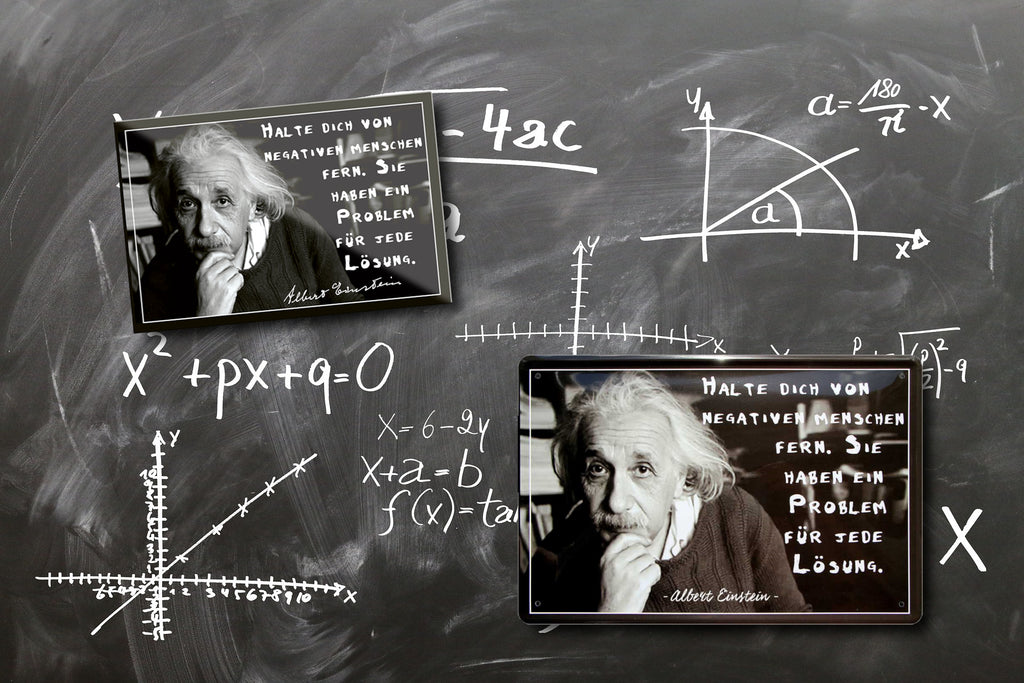 HALTE DICH VON
NEGATIVEN MENSCHEN
FERN. SIE
HABEN EIN
PROBLEM
FÜR JEDE
LÖSUNG.
Albert Einstein
- 4ac
a
y
a = 180/π · x
a
x
y
x
x² + px + q = 0
x = 6 - 2y
x + a = b
f(x) = ta
y
1 2 3 4 5 6 7 8 9 10 x
(p/2)² - 9
HALTE DICH VON
NEGATIVEN MENSCHEN
FERN. SIE
HABEN EIN
PROBLEM
FÜR JEDE
LÖSUNG.
- Albert Einstein -
X